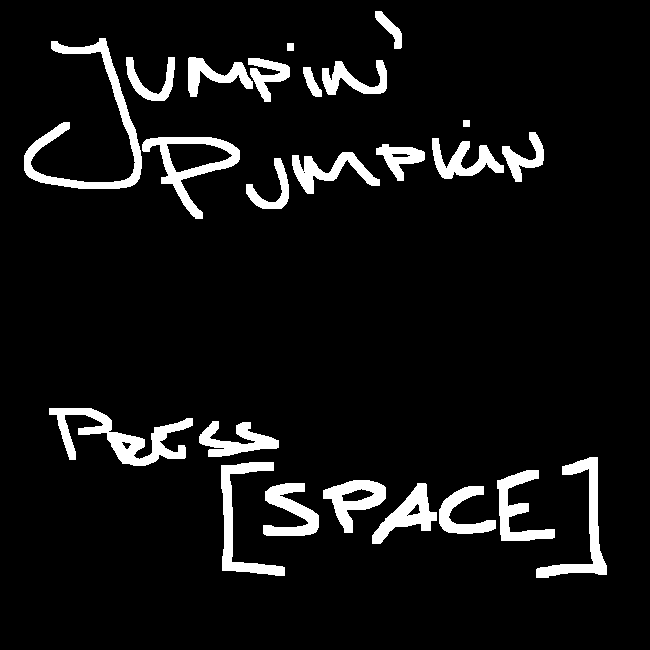 Jumpin'
Pumpkin
Press
[SPACE]